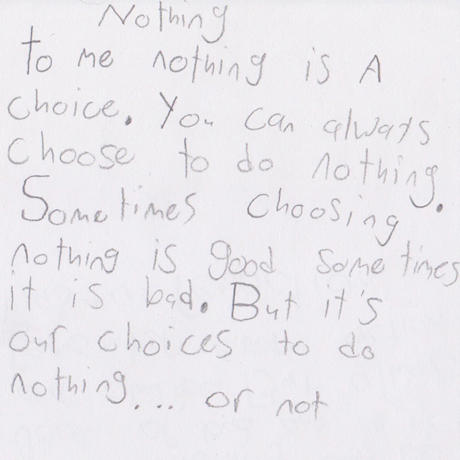 Nothing
to me nothing is A
choice. You can always
choose to do nothing.
Sometimes choosing
nothing is good sometimes
it is bad. But it's
our choices to do
nothing... or not